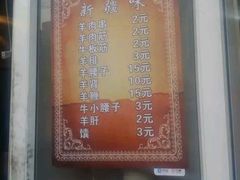 新疆味
羊肉串 2元
羊肉筋 2元
牛板筋 2元
羊排 3元
羊腰子 15元
羊肾 10元
羊鞭 15元
牛小腰子 3元
羊肝 2元
馕 3元